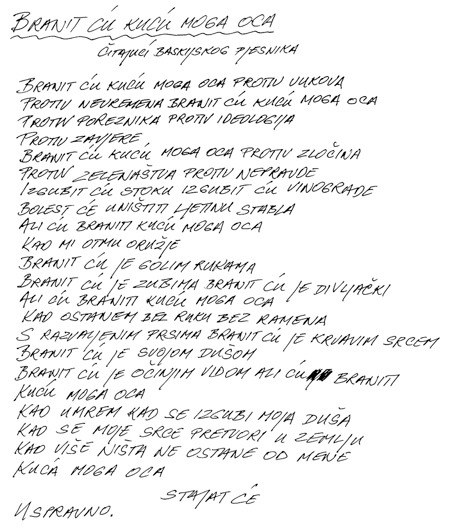 BRANIT ĆU KUĆU MOGA OCA
ČITAJUĆI BASKIJSKOG PJESNIKA
BRANIT ĆU KUĆU MOGA OCA PROTIV VUKOVA
PROTIV NEVREMENA BRANIT ĆU KUĆU MOGA OCA
PROTIV POREZNIKA PROTIV IDEOLOGIJA
PROTIV ZAVJERE
BRANIT ĆU KUĆU MOGA OCA PROTIV ZLOČINA
PROTIV ZELENAŠTVA PROTIV NEPRAVDE
IZGUBIT ĆU STOKU IZGUBIT ĆU VINOGRADE
BOLEST ĆE UNIŠTITI LJETINU STABLA
ALI ĆU BRANITI KUĆU MOGA OCA
KAD MI OTMU ORUŽJE
BRANIT ĆU JE GOLIM RUKAMA
BRANIT ĆU JE ZUBIMA BRANIT ĆU JE DIVLJAČKI
ALI ĆU BRANITI KUĆU MOGA OCA
KAD OSTANEM BEZ RUKU BEZ RAMENA
S RAZVALJENIM PRSIMA BRANIT ĆU JE KRVAVIM SRCEM
BRANIT ĆU JE SVOJOM DUŠOM
BRANIT ĆU JE OČINJIM VIDOM ALI ĆU BRANITI
KUĆU MOGA OCA
KAD UMREM KAD SE IZGUBI MOJA DUŠA
KAD SE MOJE SRCE PRETVORI U ZEMLJU
KAD VIŠE NIŠTA NE OSTANE OD MENE
KUĆA MOGA OCA
STAJAT ĆE
USPRAVNO.